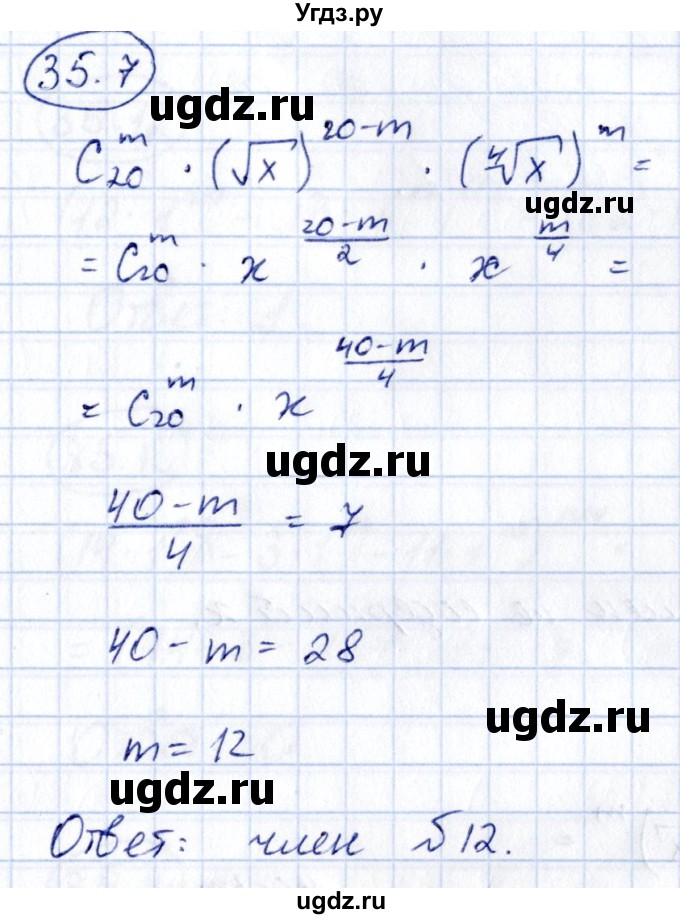 Угдз.ру
35.7
ugdz.ru
C₂₀ᵐ · (√x)²⁰⁻ᵐ · (⁴√x)ᵐ =
ugdz.ru
= C₂₀ᵐ · x^((20-m)/2) · x^(m/4) =
= C₂₀ᵐ · x^((40-m)/4)
ugdz.ru
(40-m)/4 = 7
40 - m = 28
ugdz.ru
m = 12
ugdz.ru
Ответ: член №12.
ugdz.ru